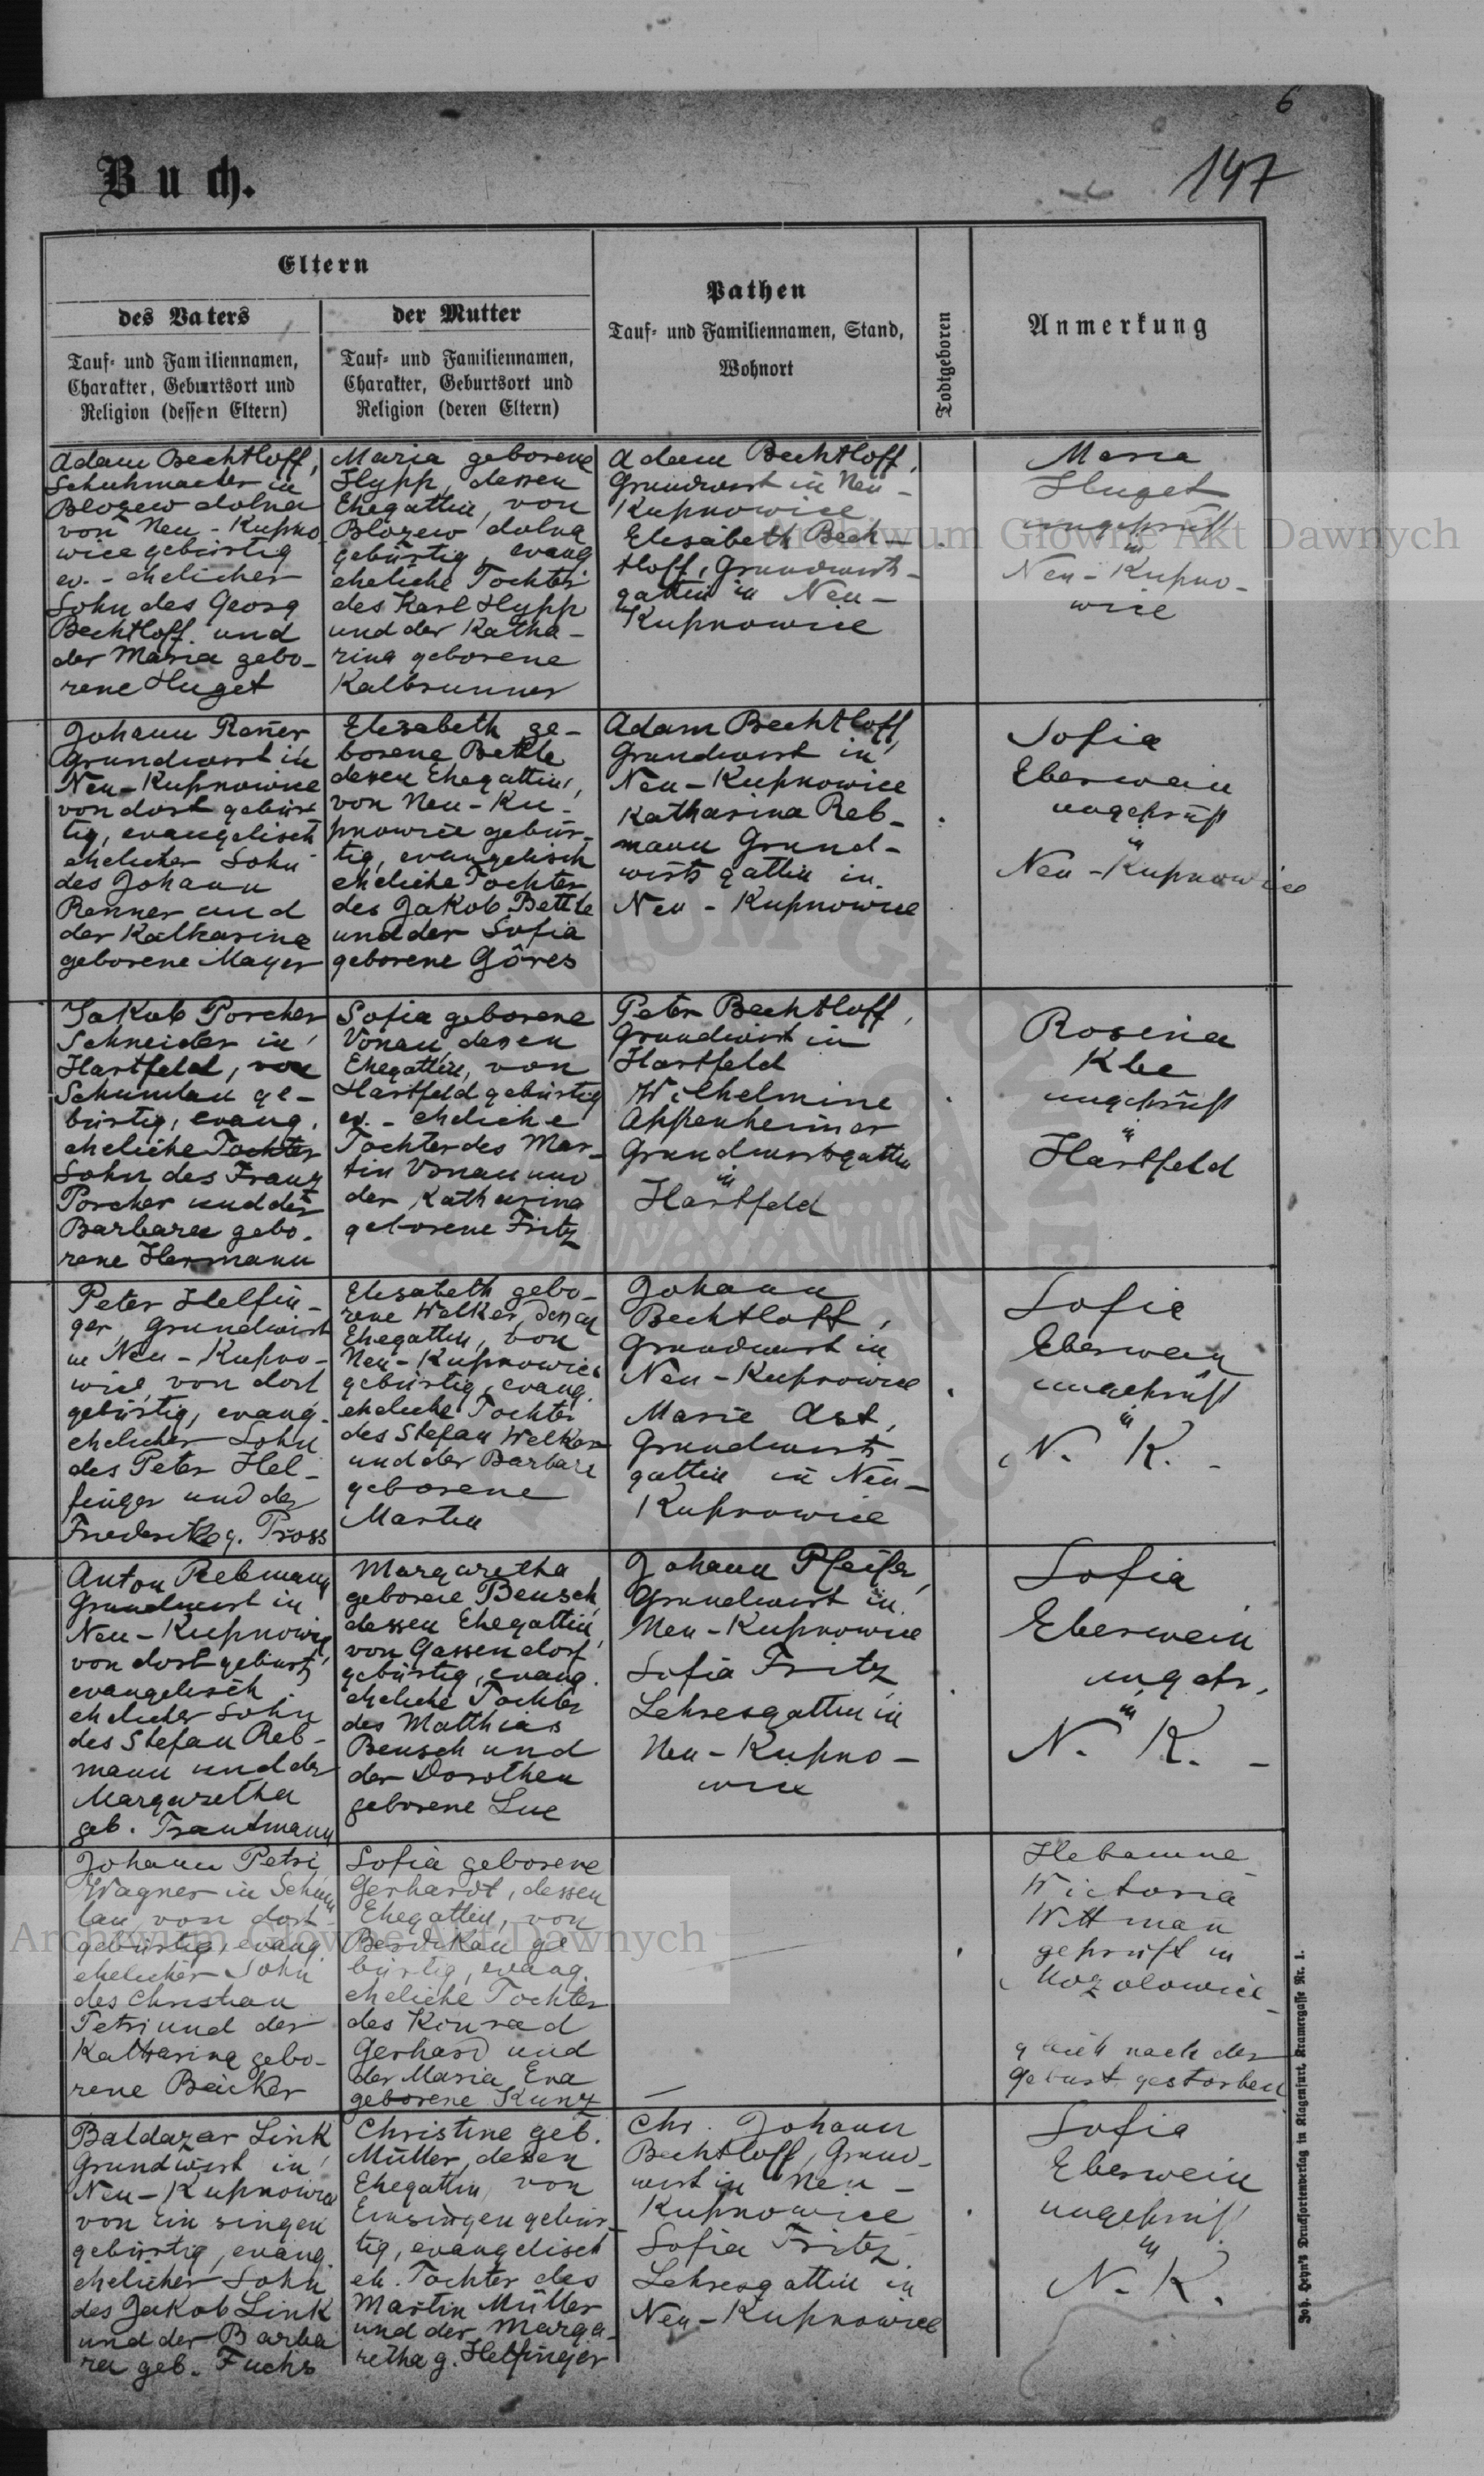 6
147
Buch.
Eltern
des Vaters
Tauf- und Familiennamen,
Charakter, Geburtsort und
Religion (dessen Eltern)
der Mutter
Tauf- und Familiennamen,
Charakter, Geburtsort und
Religion (deren Eltern)
Pathen
Tauf- und Familiennamen, Stand,
Wohnort
Todtgeboren
Anmerkung
Adam Bechtloff,
Schuhmacher in
Blozew dolna
von Neu-Kupno
wice gebürtig
ev. - ehelicher
Sohn des Georg
Bechtloff und
der Maria gebo-
rene Huget
Maria geborene
Hypp, dessen
Ehegattin, von
Blozew dolna
gebürtig, evang
eheliche Tochter
des Karl Hypp
und der Katha-
rina geborene
Kalbrunner
Adam Bechtloff,
Grundwirt in Neu-
Kupnowice
Elisabeth Bech-
tloff, Grundwirts-
gattin in Neu-
Kupnowice
Maria
Huget
ungeprüft
in
Neu-Kupno-
wice
Johann Rener
Grundwirt in
Neu-Kupnowice
von dort gebür
tig, evangelisch
ehelicher Sohn
des Johann
Renner und
der Katharina
geborene Mayer
Elisabeth ge-
borene Bettle
dessen Ehegattin,
von Neu-Ku-
pnowice gebür-
tig, evangelisch
eheliche Tochter
des Jakob Bettle
und der Sofia
geborene Göres
Adam Bechtloff,
Grundwirt in
Neu-Kupnowice
Katharina Reb-
mann Grund-
wirts gattin in
Neu-Kupnowice
Sofia
Eberwein
ungeprüft
in
Neu-Kupnowice
Jakob Porcher
Schneider in
Hartfeld, von
Schumlau ge-
bürtig, evang.
eheliche Tochter
Sohn des Franz
Porcher und der
Barbara gebo-
rene Hermann
Sofia geborene
Vonau dessen
Ehegattin, von
Hartfeld gebürtig
ev. - eheliche
Tochter des Mar-
tin Vonau und
der Katharina
geborene Fritz
Peter Bechtloff,
Grundwirt in
Hartfeld
Wilhelmine
Appenheimer
Grundwirtsgattin
in
Hartfeld
Rosina
Kbe
ungeprüft
in
Hartfeld
Peter Helfin-
ger, Grundwirt
in Neu-Kupno-
wice, von dort
gebürtig, evang.
ehelicher Sohn
des Peter Hel-
finger und der
Friederike g. Pross
Elisabeth gebo-
rene Welker, dessen
Ehegattin, von
Neu-Kupnowice
gebürtig, evang.
eheliche Tochter
des Stefan Welker
und der Barbara
geborene
Martin
Johann
Bechtloff,
Grundwirt in
Neu-Kupnowice
Marie Ast,
Grundwirts
gattin in Neu-
Kupnowice
Sofia
Eberwein
ungeprüft
in
N. K.
Anton Rebmann
Grundwirt in
Neu-Kupnowice
von dort gebürt.
evangelisch
ehelicher Sohn
des Stefan Reb-
mann und der
Margaretha
geb. Trautmann
Margaretha
geborene Bensch
dessen Ehegattin,
von Gassendorf
gebürtig, evang.
eheliche Tochter
des Matthias
Bensch und
der Dorothea
geborene Lue
Johann Pfeifer,
Grundwirt in
Neu-Kupnowice
Sofia Fritz
Lehresgattin in
Neu-Kupno-
wice
Sofia
Eberwein
ungepr.
in
N. K. -
Johann Petri
Wagner in Schum
lau von dort
gebürtig, evang.
ehelicher Sohn
des Christian
Petri und der
Katharina gebo-
rene Bäcker
Sofia geborene
Gerhardt, dessen
Ehegattin, von
Berdikau ge
bürtig, evang.
eheliche Tochter
des Konrad
Gerhard und
der Maria Eva
geborene Kunz
Hebamme
Wictoria
Wittman
geprüft in
gleich nach der
Geburt gestorben
Baldazar Link
Grundwirt in
Neu-Kupnowice
von Einsingen
gebürtig, evang.
ehelicher Sohn
des Jakob Link
und der Barba
ra geb. Fuchs
Christine geb.
Müller, dessen
Ehegattin, von
Einsingen gebür-
tig, evangelisch
eh. Tochter des
Martin Müller
und der Marga-
retha g. Helfinger
Chr. Johann
Bechtloff, Grund-
wirt in Neu-
Kupnowice
Sofia Fritz
Lehresgattin in
Neu-Kupnowice
Sofia
Eberwein
ungeprüf
in
N. K.
Joh. Heyn's Drucksortenverlag in Klagenfurt, Kramergasse Nr. 1.
Archiwum Główne Akt Dawnych
Archiwum Główne Akt Dawnych